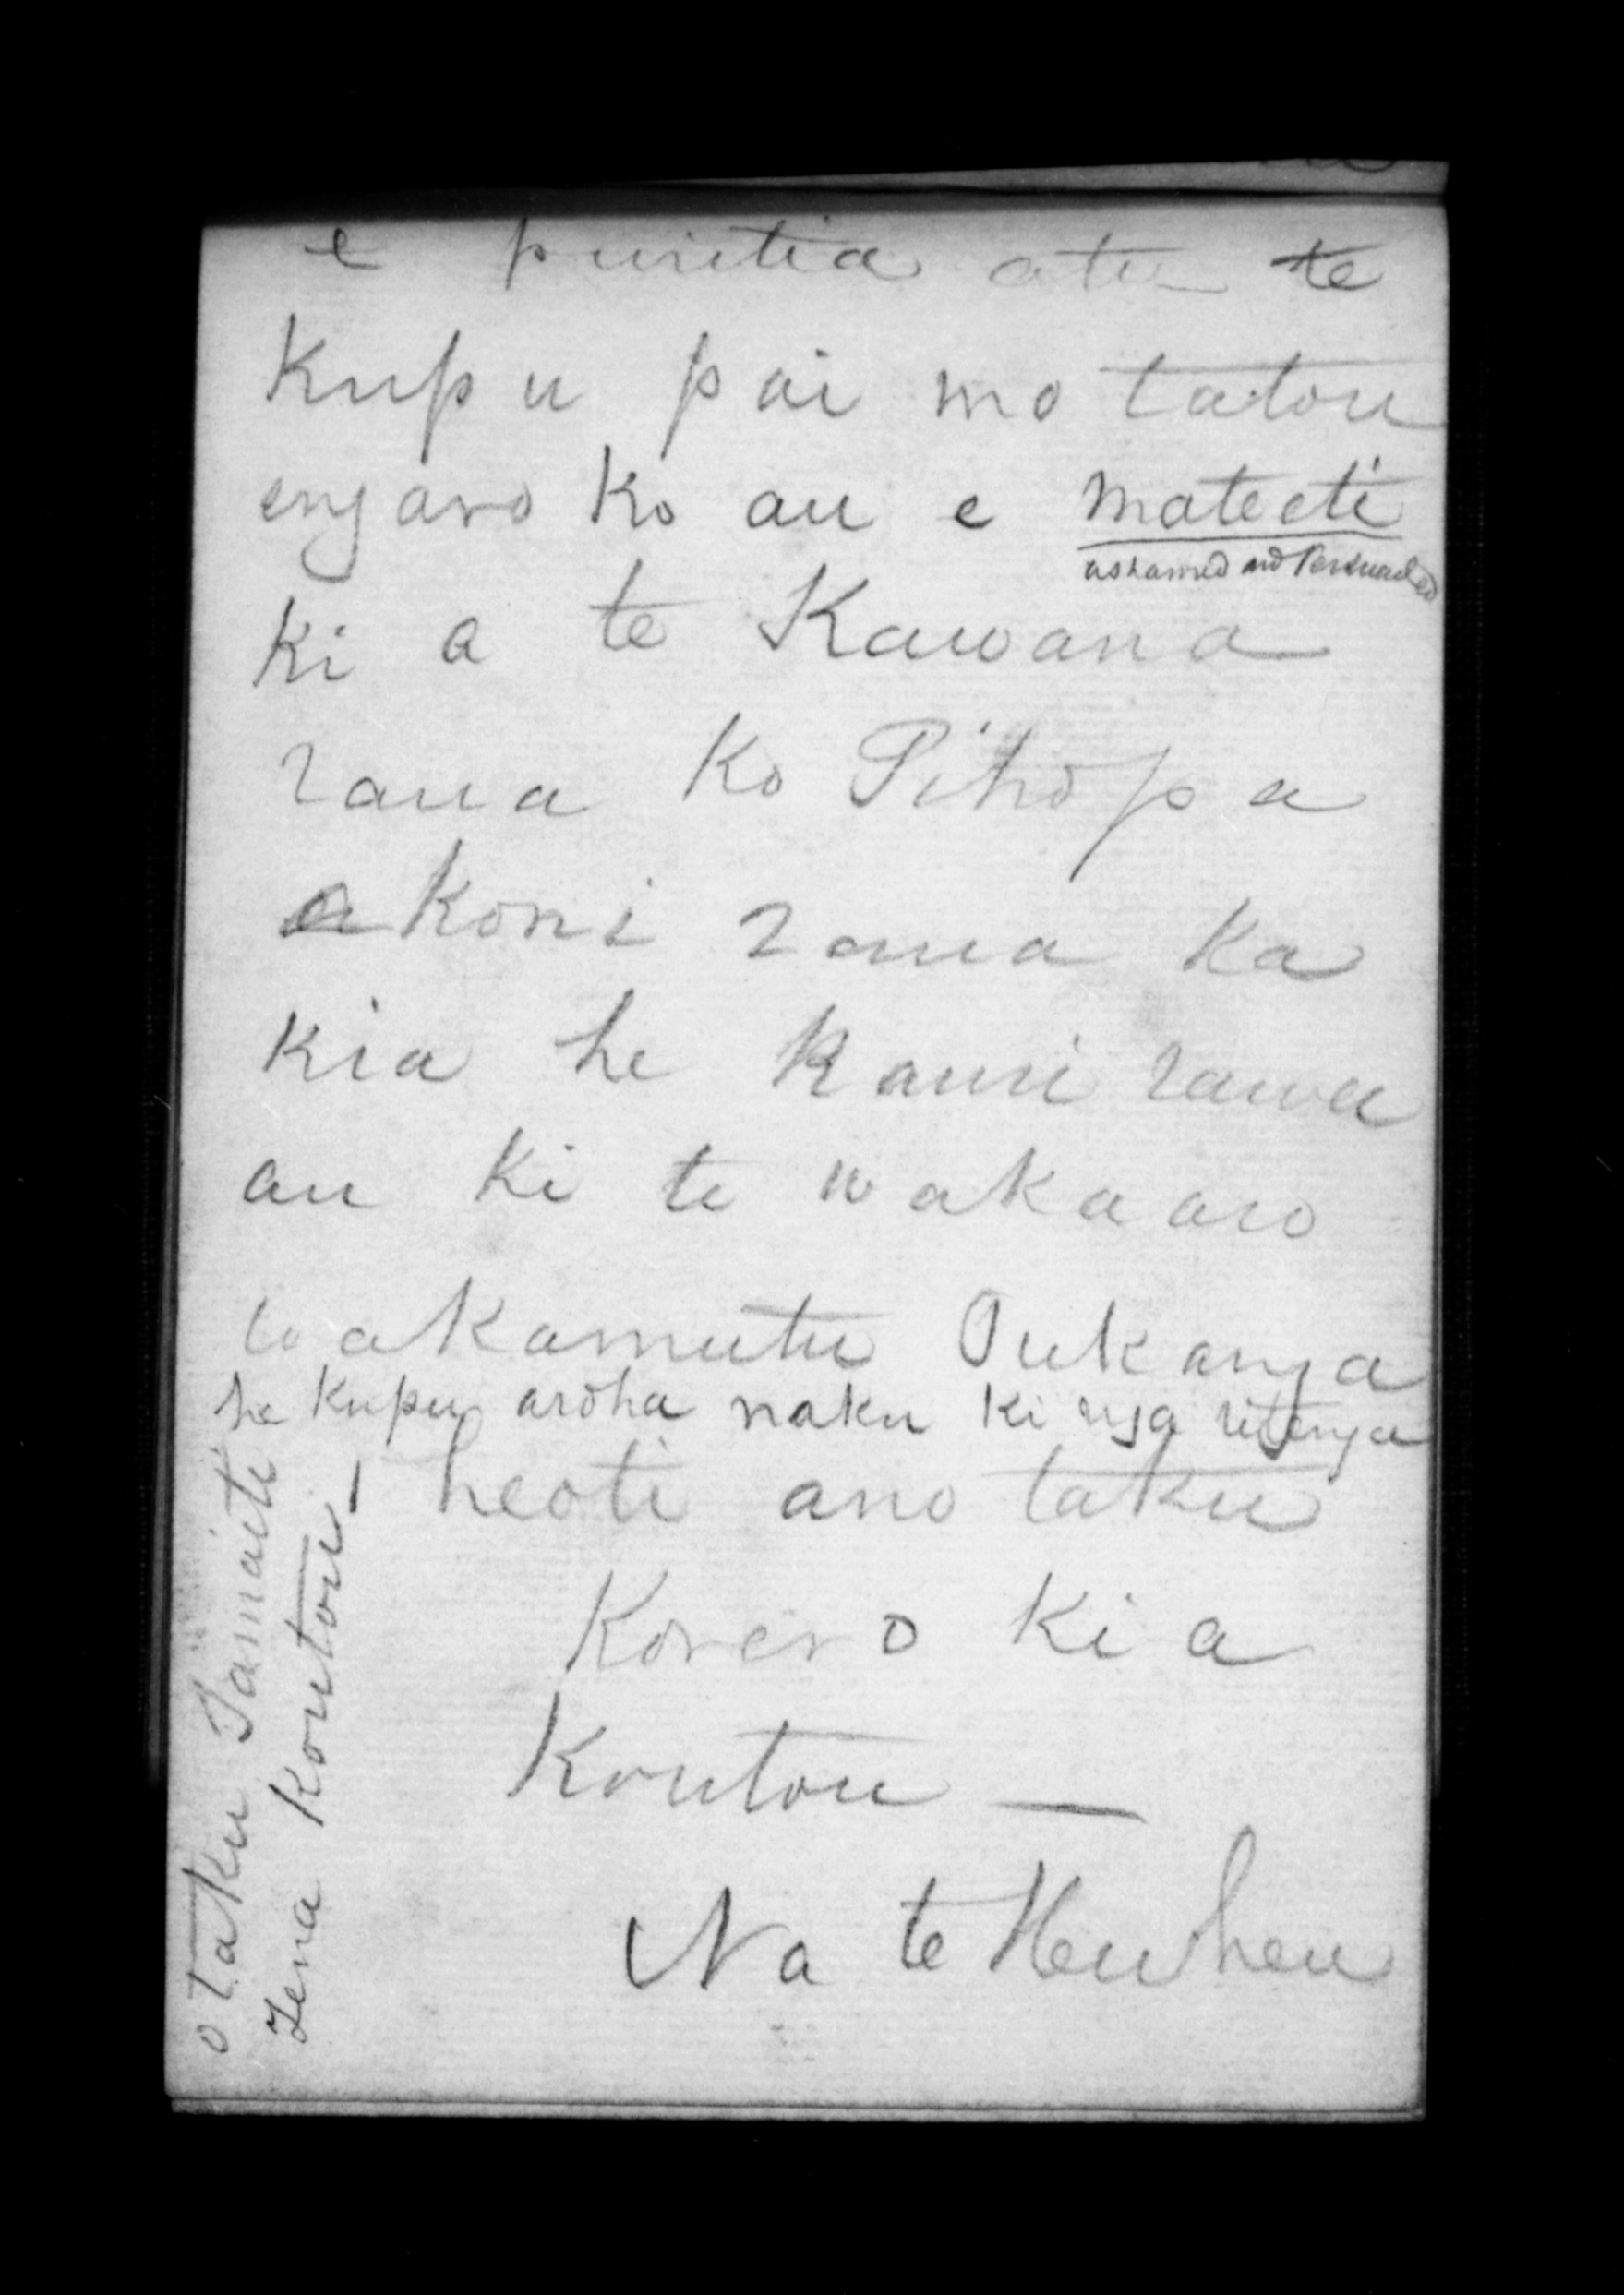 e puritia atu te
Kupu pai mo tatou
engaro Ko au e mateeti
ashamed and Persuaded
Ki a te Kawana
raua Ko Pihopa
akoni raua ka
Kia he Kauri rawa
au Ki te wakaaro
wakamutu Oukanga
he Kupu aroha naku Ki nga ritenga
o taku Tamaiti
Tena Koutou —
heoti ano taku
Korero Ki a
Koutou —
Na te Heuheu